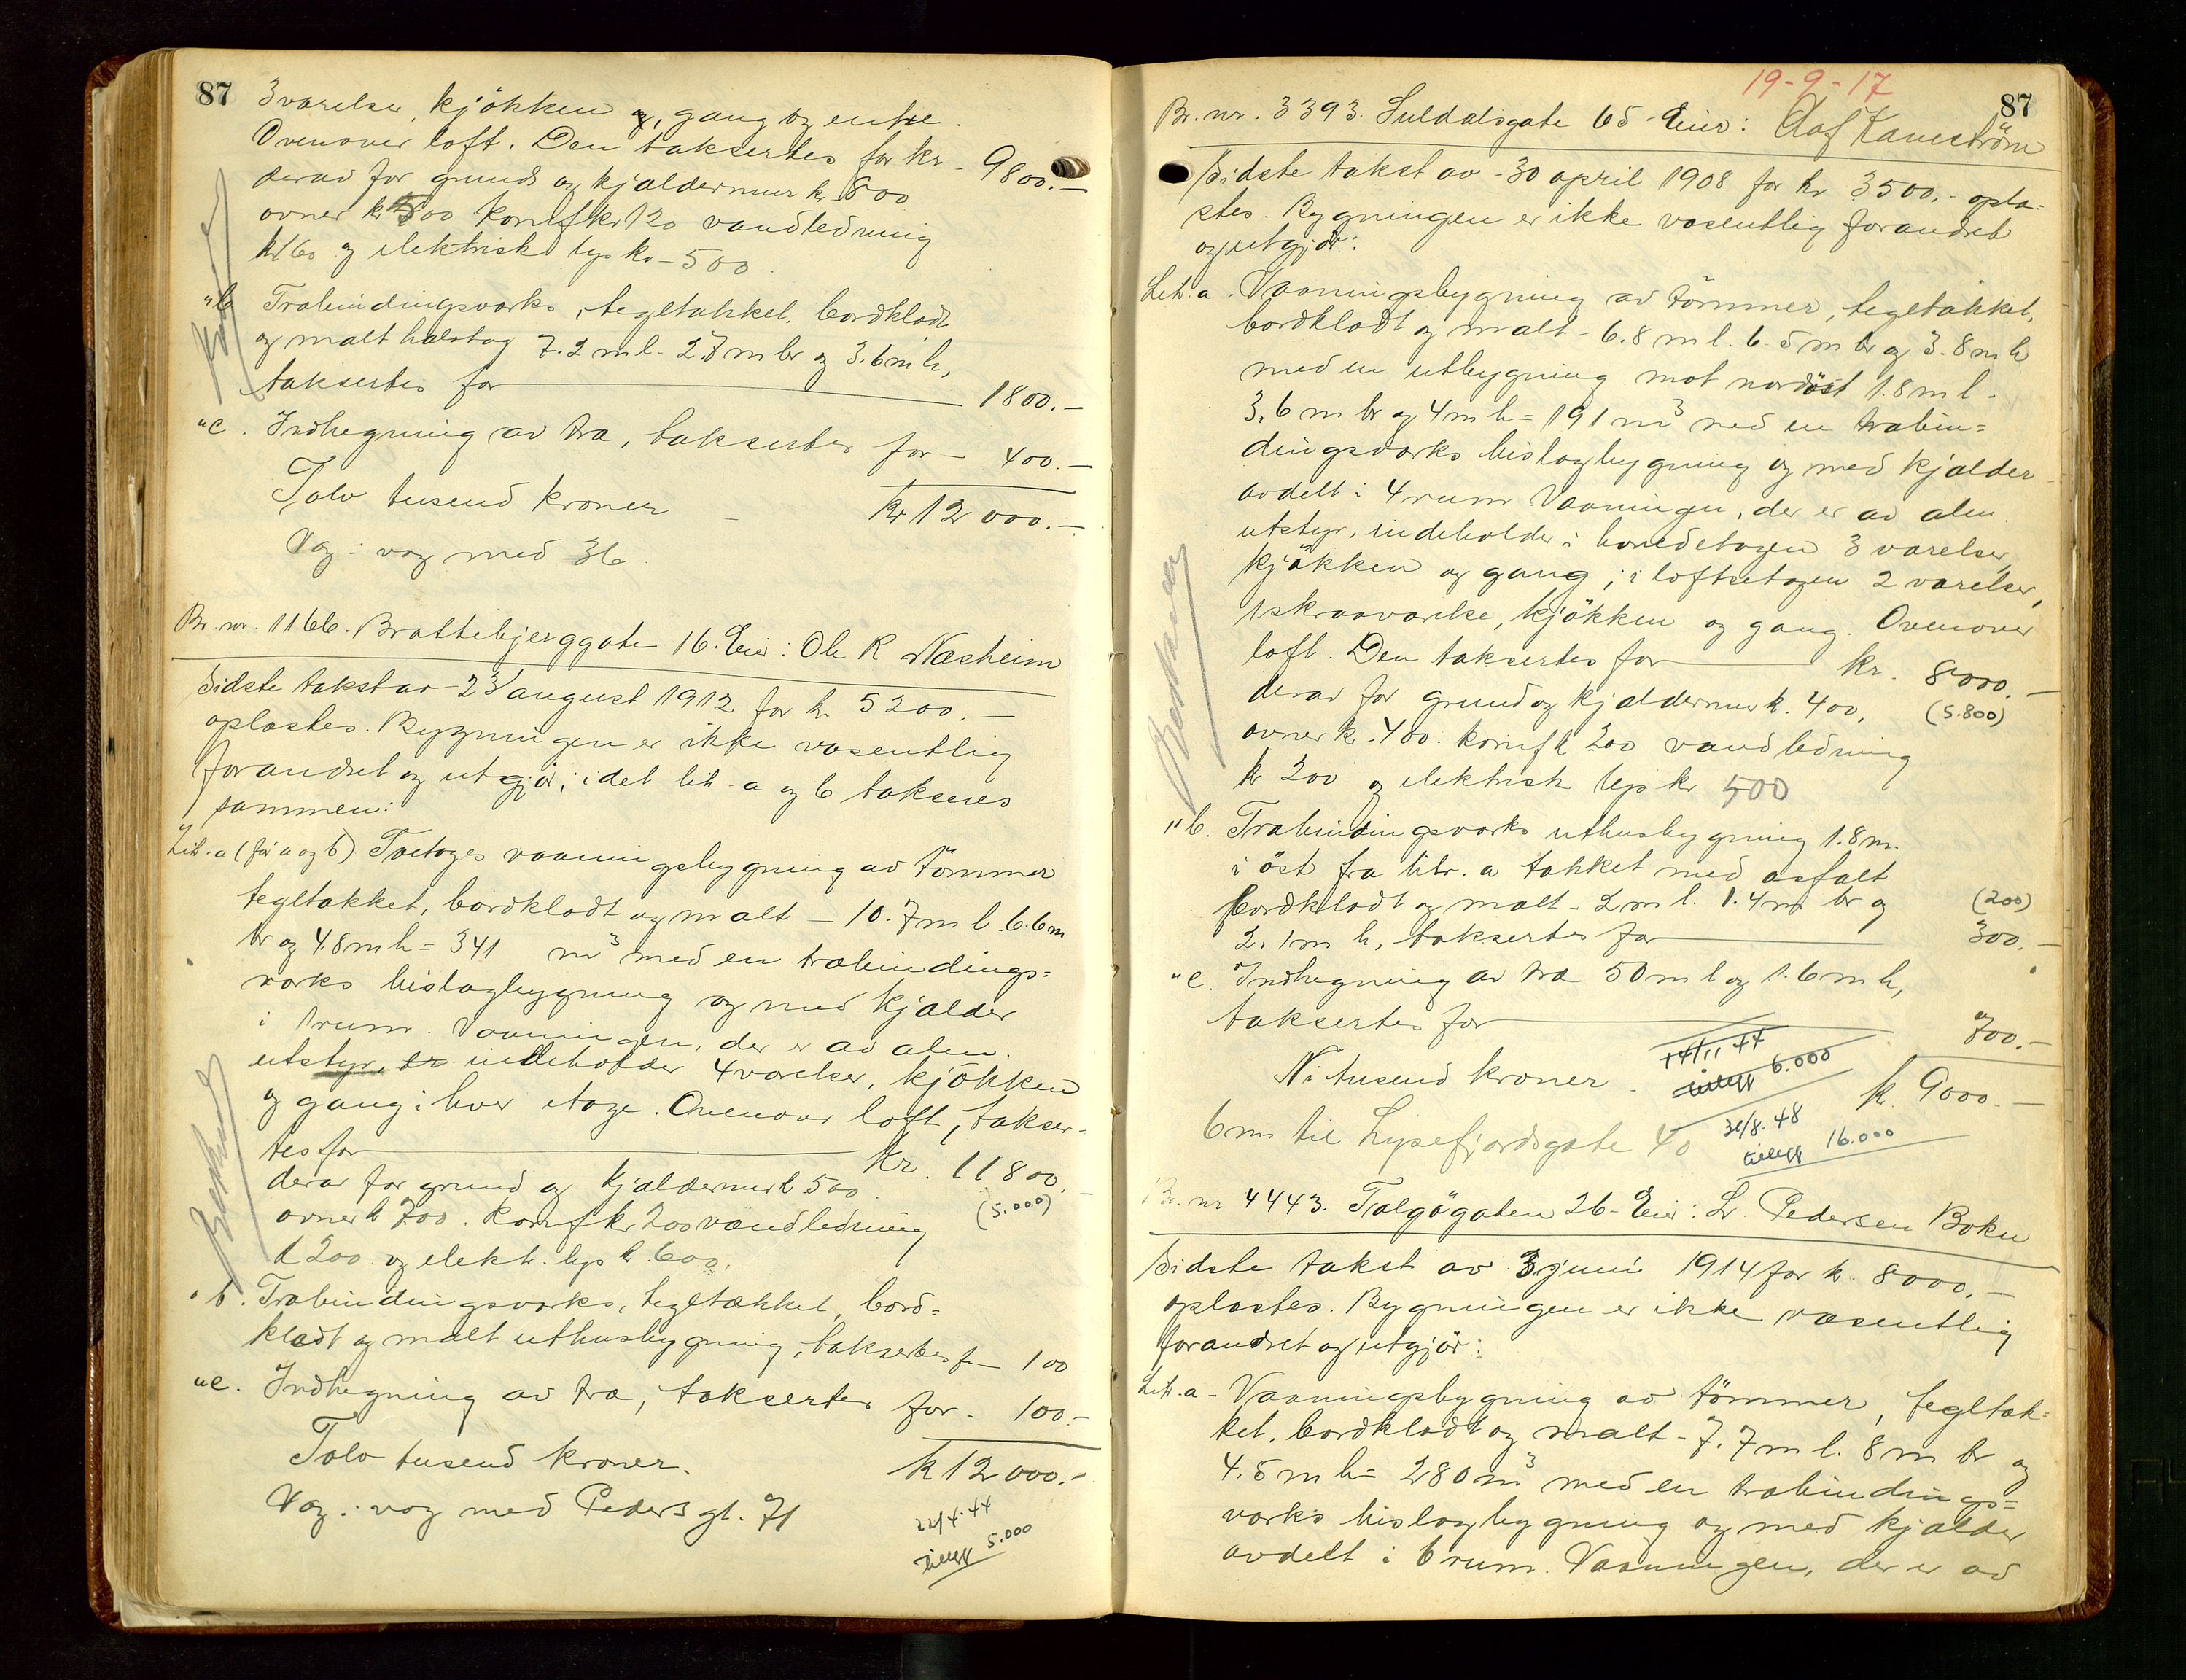 87
3 værelser, kjökken og, gang og entre.
Ovenover loft. Den taksertes for kr - 9800.-
derav for grund og kjældermur kr 800
ovner kr 500 komf kr 120 vandledning
kr 160 og elektrisk lys kr - 500.
"b Træbindingsværks, tegltækket, bordklædt
og malt halvtag 7.2 m l. 2.7 m br og 3.6 m h,
taksertes for 1800.-
"c. Indhegning av træ, taksertes for - 400.-
Tolv tusend kroner - kr 12 000.-
Vag: vag med 36.
Br. nr. 1166. Brattebjerggate 16. Eier: Ole R Næsheim
Sidste takst av - 23 august 1912 for kr. 5200.-
oplæstes. Bygningen er ikke væsentlig
forandret og utgjör, idet litr. a og b takseres
sammen:
Litr. a (för a og b) Toetages vaaningsbygning av tömmer
tegltækket, bordklædt og malt - 10.7 m l. 6.6 m
br og 4.8 m h = 341 m³ med en træbindings=
værks bislagbygning og med kjælder
i 1 rum. Vaaningen, der er av alm.
utstyr, er indeholder 4 værelser, kjökken
og gang i hver etage. Ovenover loft, takser-
tes for kr. 11800.-
derav for grund og kjældermur kr 500. (5.000)
ovner kr 700. komf kr 200 vandledning
kr 200 og elektr. lys kr. 600.
"b. Træbindingsværks, tegltækket, bord=
klædt og malt uthusbygning, taksertes f - 100
"c. Indhegning av træ, taksertes for - 100.-
Tolv tusend kroner. kr 12 000.-
Vag: vag med Peders gt. 71
22/4.44
tillegg 5.000
19-9-17
87
Br. nr. 3393. Suldalsgate 65 - Eier: Olaf Kaneström
Sidste takst av - 30 april 1908 for kr 3500.- oplæ=
stes. Bygningen er ikke væsentlig forandret
og utgjör:
Litr. a. Vaaningsbygning av tömmer, tegltækket,
bordklædt og malt - 6.8 m l. 6.5 m br og 3.8 m h
med en utbygning mot nordöst 1.8 m l -
3.6 m br og 4 m h = 191 m³ med en træbin=
dingsværks bislagbygning og med kjælder
avdelt i 4 rum Vaaningen, der er av alm.
utstyr, indeholder i hovedetagen 3 værelser,
kjökken og gang; i loftsetagen 2 værelser,
1 skraaværelse, kjökken og gang. Ovenover
loft. Den taksertes for kr. 8000.-
derav for grund og kjældermur k. 400, (5.800)
ovner kr. 480. komf k 200 vandledning
kr 200 og elektrisk lys kr 500
"b. Træbindingsværks uthusbygning 1.8 m.
i öst fra litr. a tækket med asfalt
bordklædt og malt - 2 m l. 1.4 m br og (200)
2.1 m h, taksertes for 300.-
"c. Indhegning av træ 50 m l og 1.6 m h,
taksertes for 700.-
Ni tusend kroner. k. 9000.-
14/11 44
tillegg 6.000
6 m til Lysefjordsgate 40
31/8.48
tillegg 16.000
Br. nr 4443. Talgögaten 26 - Eier: L. Pedersen Bokn
Sidste takst av 3 juni 1914 for k. 8000.-
oplæstes. Bygningen er ikke væsentlig
forandret og utgjör:
Litr. a - Vaaningsbygning av tömmer, tegltæk=
ket, bordklædt og malt - 7.7 m l. 8 m br og
4.5 m h = 280 m³ med en træbindings=
værks bislagbygning og med kjælder
avdelt i 6 rum. Vaaningen, der er av